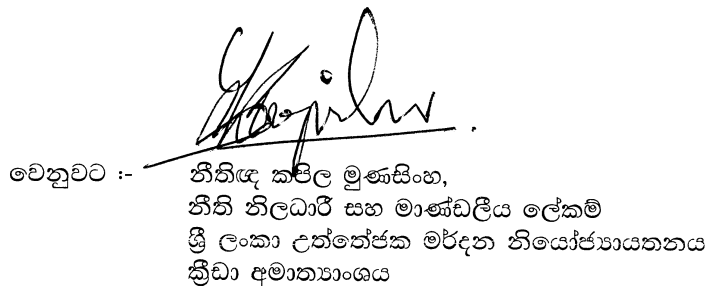 වෙනුවට :- නීතිඥ කපිල මුණසිංහ,
නීති නිලධාරී සහ මාණ්ඩලීය ලේකම්
ශ්‍රී ලංකා උත්තේජක මර්දන නියෝජ්‍යායතනය
ක්‍රීඩා අමාත්‍යාංශය